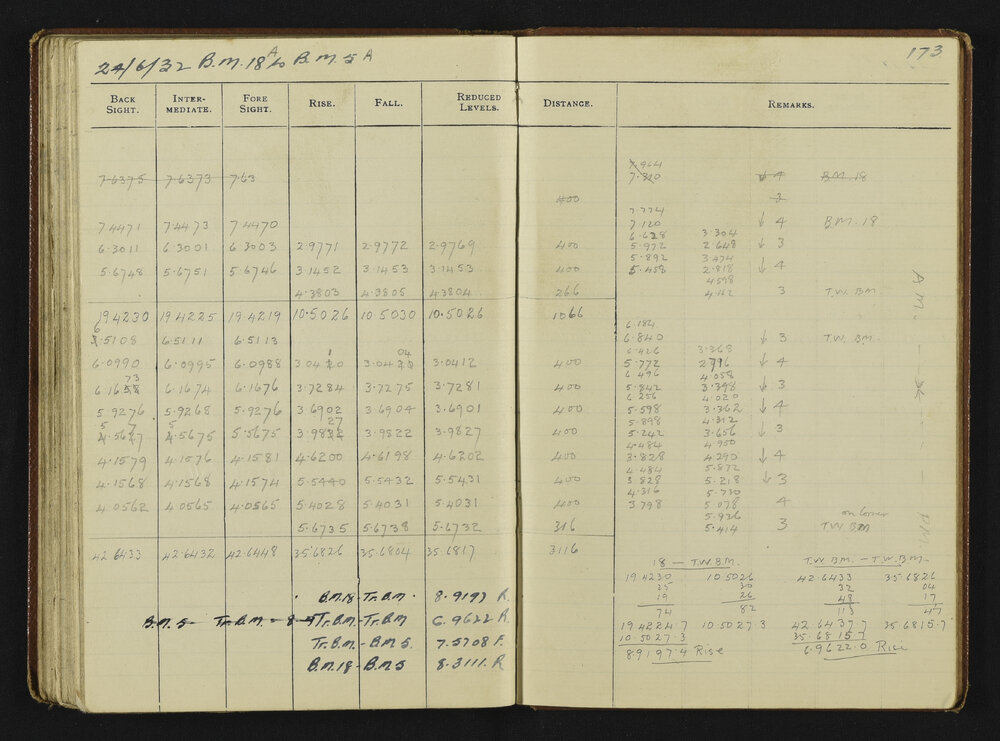 24/6/32 B.M. 18 A to B.M. 5 A
173
BACK SIGHT. INTER-MEDIATE. FORE SIGHT. RISE. FALL. REDUCED LEVELS. DISTANCE. REMARKS.
7.964
7.6375 7.6373 7.63 7.320 ↓ 4 B.M. 18
400 3
7.774
7 4471 7 4473 7 4470 7 120 ↓ 4 B.M. 18
6.628 3.304
6.3011 6.3001 6.3003 2.9771 2.9772 2.9769 400 5.972 2.648 ↓ 3
5.892 3.474
5.6748 5.6751 5.6746 3.1452 3.1453 3.1453 400 5.458 2.818 ↓ 4
4598
4.3803 4.3805 4.3804 266 4.112 3 T.W. BM.
19 4230 19 4225 19.4219 10.5026 10 5030 10.5026 1066
6.184
6.5108 6.5111 6.5113 6.840 ↓ 3 T.W. BM.
6.426 3.368
6.0990 6.0995 6.0988 3.0410 3.0404 3.0412 400 5.772 2716 ↓ 4
6.496 4.058
6.1673 6.1674 6.1676 3.7284 3.7275 3.7281 400 5.842 3.398 ↓ 3
6.256 4.020
5.9276 5.9268 5.9276 3.6902 3.6904 3.6901 400 5.598 3.362 ↓ 4
5.898 4.312
5.5677 5.5675 5.5675 3.9827 3.9822 3.9827 400 5.242 3.656 ↓ 3
4.484 4.950
4.1579 4.1576 4.1581 4.6200 4.6198 4.6202 400 3.828 4.290 ↓ 4
4.484 5.872
4.1568 4.1568 4.1574 5.5440 5.5432 5.5431 400 3.828 5.218 ↓ 3
4.316 5.730
4.0562 4.0565 4.0565 5.4028 5.4031 5.4031 400 3.798 5.078 4
5.926 on corner
5.6735 5.6738 5.6732 316 5.414 3 T.W BM
42 6433 42.6432 42.6448 35.6826 35.6804 35 6817 3116
A.M. — — P.M.
18 — T.W.B.M. T.W BM. — T.W.BM.
19 4230 10.5026 42.6433 35.6826
25 30 32 04
19 26 48 17
74 82 113 47
B.M.18 - Tr.B.M. 8.9197 R.
19 4224.7 10.5027.3 42.6437.7 35.6815.7
B.M. 5 - Tr.B.M. - 8.9 Tr.B.M. - Tr.B.M 6.9622 R
10.5027.3 35.6815.7
Tr.B.M. - B.M.5 7.5708 F.
8.9197.4 Rise 6.9622.0 Rise
B.M.18 - B.M.5 8.3111. R